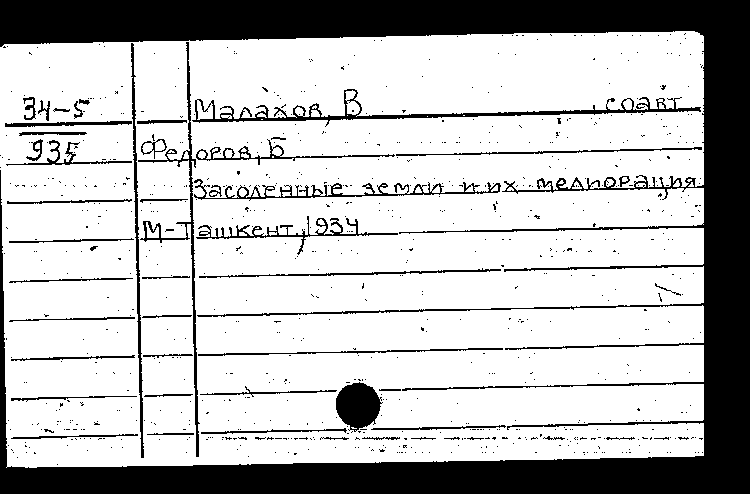 34-5 Малахов, В соавт
935 Федоров, Б
Засоленные земли и их мелиорация
М-Ташкент, 1934